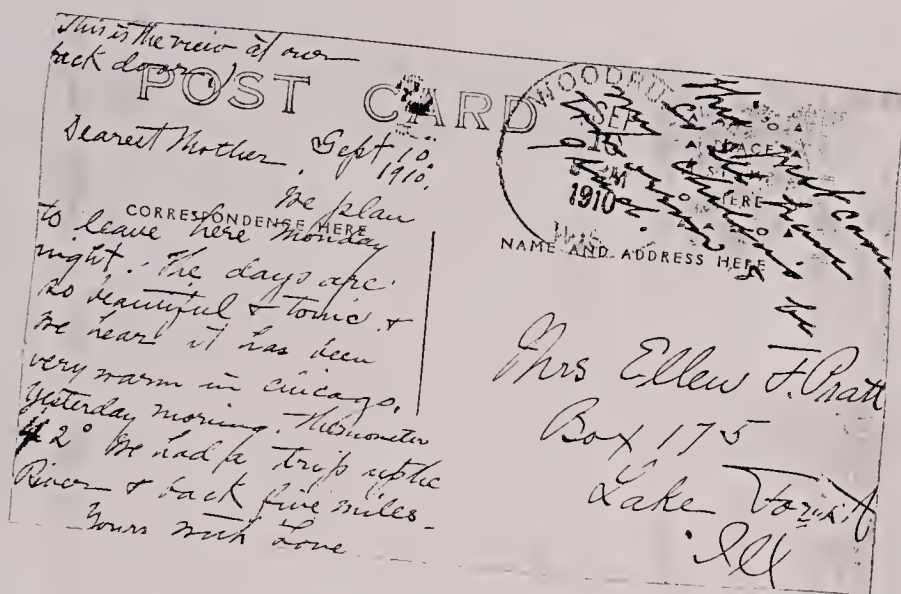 This is the view at our
back door.)
POST CARD
Dearest Mother. Sept 10.
1910.
We plan
CORRESPONDENCE HERE
to leave here Monday
night. The days are
so beautiful & tonic &
we hear it has been
very warm in Chicago.
Yesterday morning. Thermometer
42° We had a trip up the
River & back five miles-
Yours with Love
WOODRU
SEP
10
PM
1910
PLACE
STAMP
HERE
NAME AND ADDRESS HERE
Mrs Ellen F. Pratt
Box 175
Lake Forest
Ill